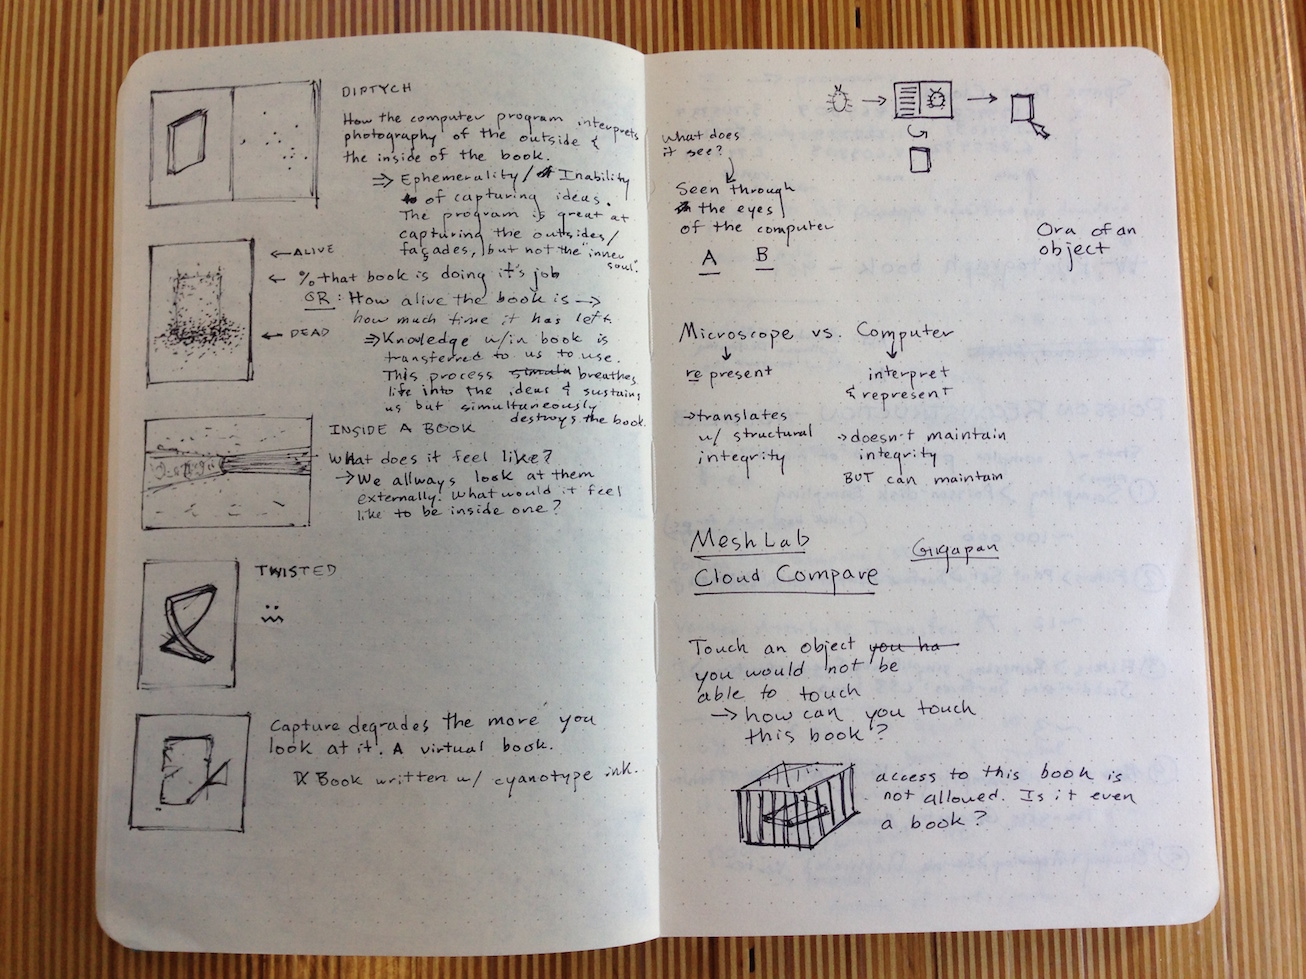 DIPTYCH
How the computer program interprets
photography of the outside &
the inside of the book.
⇒ Ephemerality / Inability
of capturing ideas.
The program is great at
capturing the outsides/
façades, but not the "inner
soul."
← ALIVE
← % that book is doing it's job
OR: How alive the book is →
how much time it has left.
← DEAD
⇒ Knowledge w/in book is
transferred to us to use.
This process simula breathes
life into the ideas & sustains
us but simultaneously
destroys the book.
INSIDE A BOOK
What does it feel like?
→ We allways look at them
externally. What would it feel
like to be inside one?
TWISTED
Capture degrades the more you
look at it. A virtual book.
Book written w/ cyanotype ink.
What does
it see?
Seen through
the eyes
of the computer
A B
Ora of an
object
Microscope vs. Computer
represent
interpret
& represent
→ translates
w/ structural
integrity
→ doesn't maintain
integrity
BUT can maintain
MeshLab
Gigapan
Cloud Compare
Touch an object you ha
you would not be
able to touch
→ how can you touch
this book?
access to this book is
not allowed. Is it even
a book?